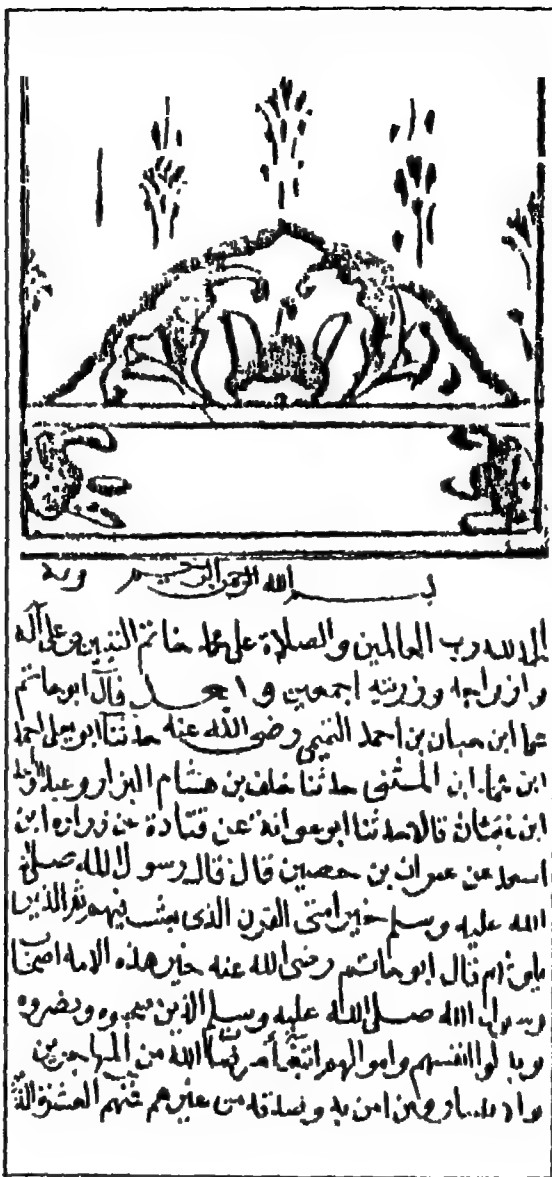 بسم الله الرحمن الرحيم وبه
الحمد لله رب العالمين والصلاة على محمد خاتم النبيين وعلى آله
وازواجه وذريته اجمعين وبعد قال ابو حاتم
محمد ابن حبان بن احمد التميمي رضى الله عنه حدثنا ابو يعلى احمد
ابن على ابن المثنى حدثنا خلف بن هشام البزار وعبد الواحد
ابن غياث قالا حدثنا ابو عوانة عن قتادة عن زراره ابن
عن عمران بن حصين قال قال رسول الله صلى
الله عليه وسلم خير امتى القرن الذى بعثت فيهم ثم الذين
يلونهم قال ابو حاتم رضى الله عنه خير هذه الامه اصحاب
رسول الله صلى الله عليه وسلم الذين صحبوه ونصروه
وبذلوا انفسهم واموالهم مرضات الله من المهاجرين
والانصار ومن امن به وصدقه من غيرهم فمنهم العشرة